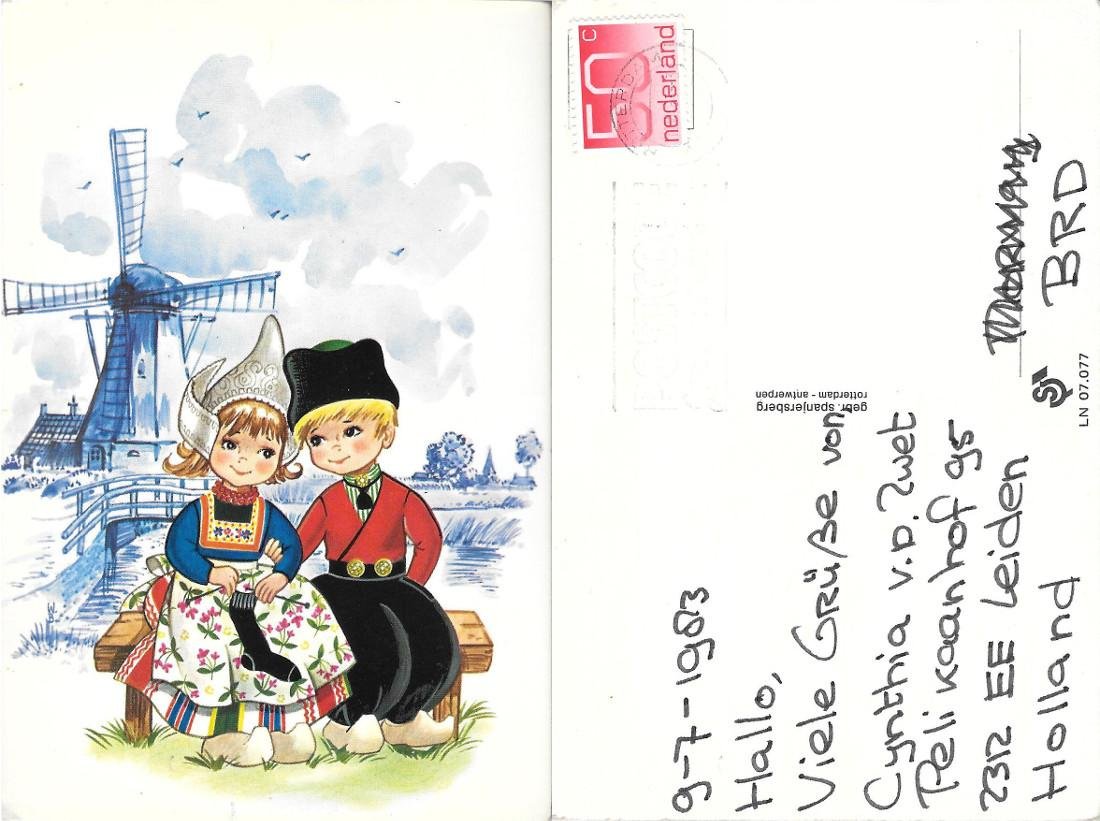 50 C
nederland
9-7-1983
Hallo,
Viele Grüße von
Cynthia v.D. Zwet
Pelikaanhof 95
2312 EE Leiden
Holland
gebr. spanjersberg
rotterdam - antwerpen
BRD
LN 07.077